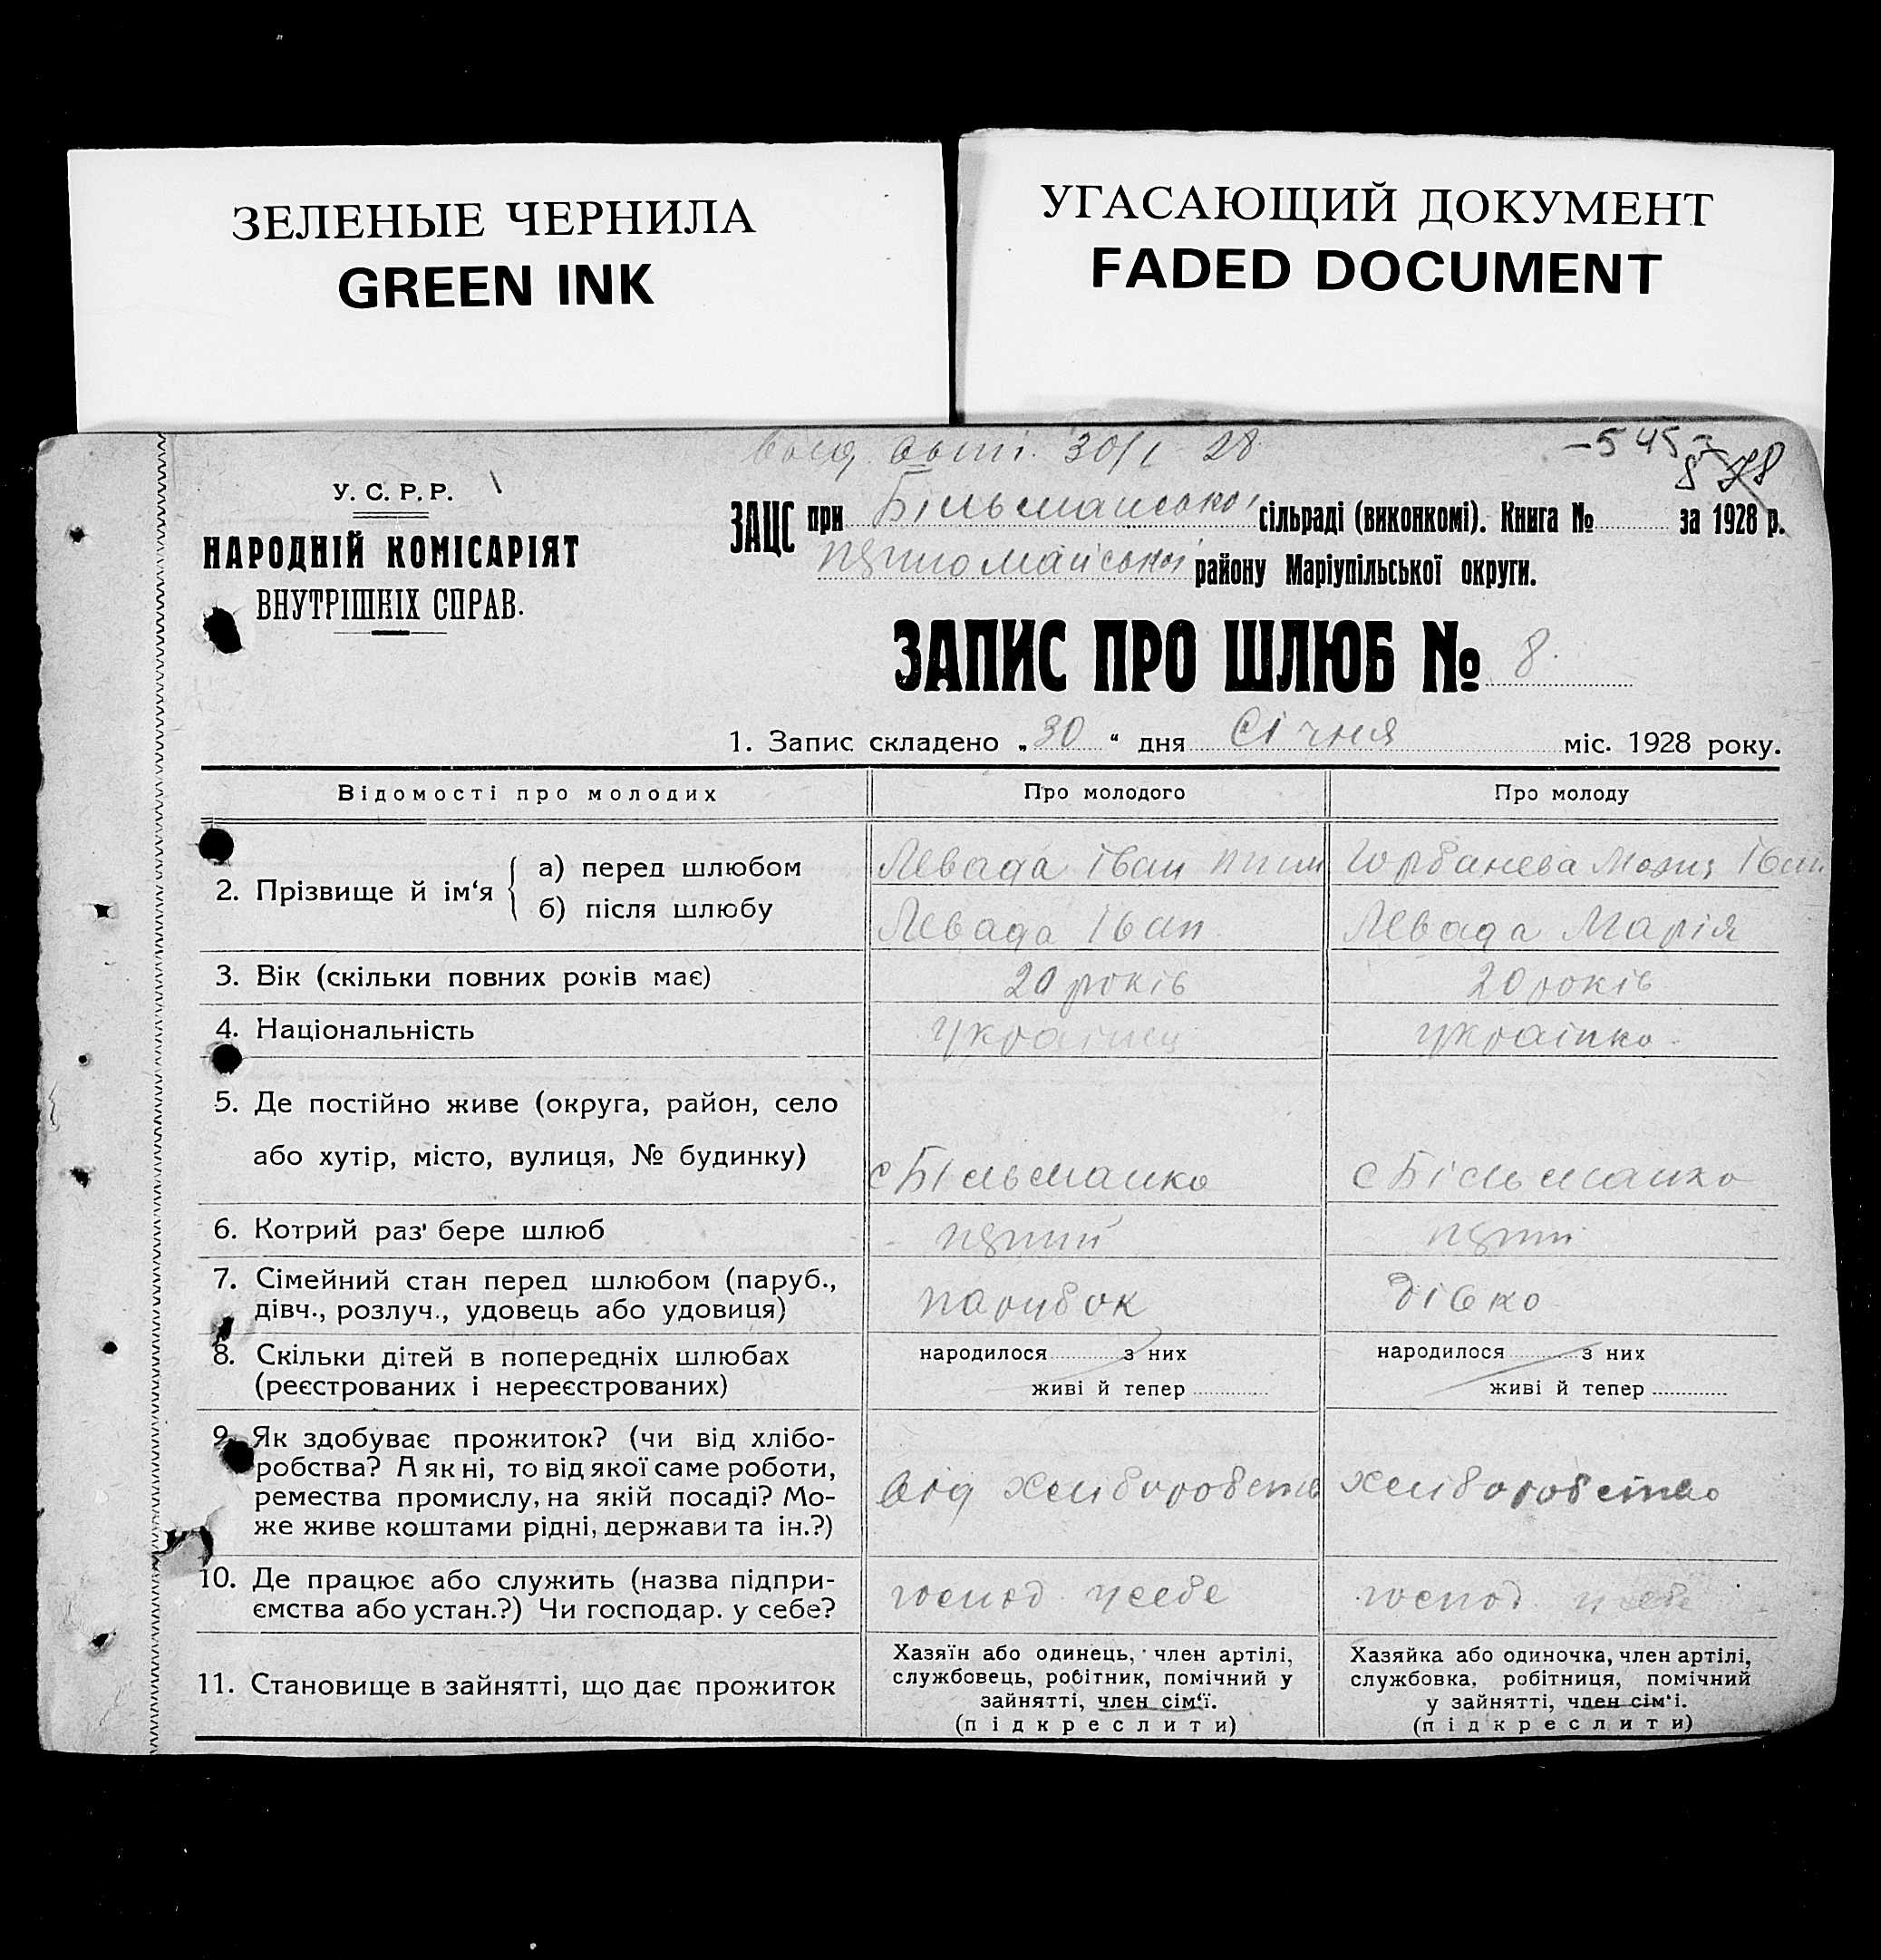 ЗЕЛЕНЫЕ ЧЕРНИЛА
GREEN INK
УГАСАЮЩИЙ ДОКУМЕНТ
FADED DOCUMENT
30/I 28
-545
У. С. Р. Р.
НАРОДНІЙ КОМІСАРІЯТ
ВНУТРІШНІХ СПРАВ.
ЗАЦС при Більманської сільраді (виконкомі). Книга № за 1928 р.
району Маріупільської округи.
ЗАПИС ПРО ШЛЮБ № 8.
1. Запис складено „30“ дня Січня міс. 1928 року.
Відомості про молодих Про молодого Про молоду
2. Прізвище й ім‘я
а) перед шлюбом Левада Іван Горбанева Іван
б) після шлюбу Левада Іван Левада Марія
3. Вік (скільки повних років має) 20 років 20 років
4. Національність українец українка
5. Де постійно живе (округа, район, село
або хутір, місто, вулиця, № будинку) с Більманка с Більманка
6. Котрий раз' бере шлюб
7. Сімейний стан перед шлюбом (паруб., дівч., розлуч., удовець або удовиця) парубок дівка
8. Скільки дітей в попередніх шлюбах народилося з них народилося з них
(реєстрованих і нереєстрованих) живі й тепер живі й тепер
9. Як здобуває прожиток? (чи від хлібо-
робства? А як ні, то від якої саме роботи,
ремества промислу, на якій посаді? Мо- від хлиборобств хлиборобство
же живе коштами рідні, держави та ін.?)
10. Де працює або служить (назва підпри-
ємства або устан.?) Чи господар. у себе? господ усебе господ усебе
11. Становище в зайнятті, що дає прожиток
Хазяїн або одинець, член артілі,
службовець, робітник, помічний у
зайнятті, член сім‘ї.
(підкреслити)
Хазяйка або одиночка, член артілі,
службовка, робітниця, помічний
у зайнятті, член сім‘і.
(підкреслити)